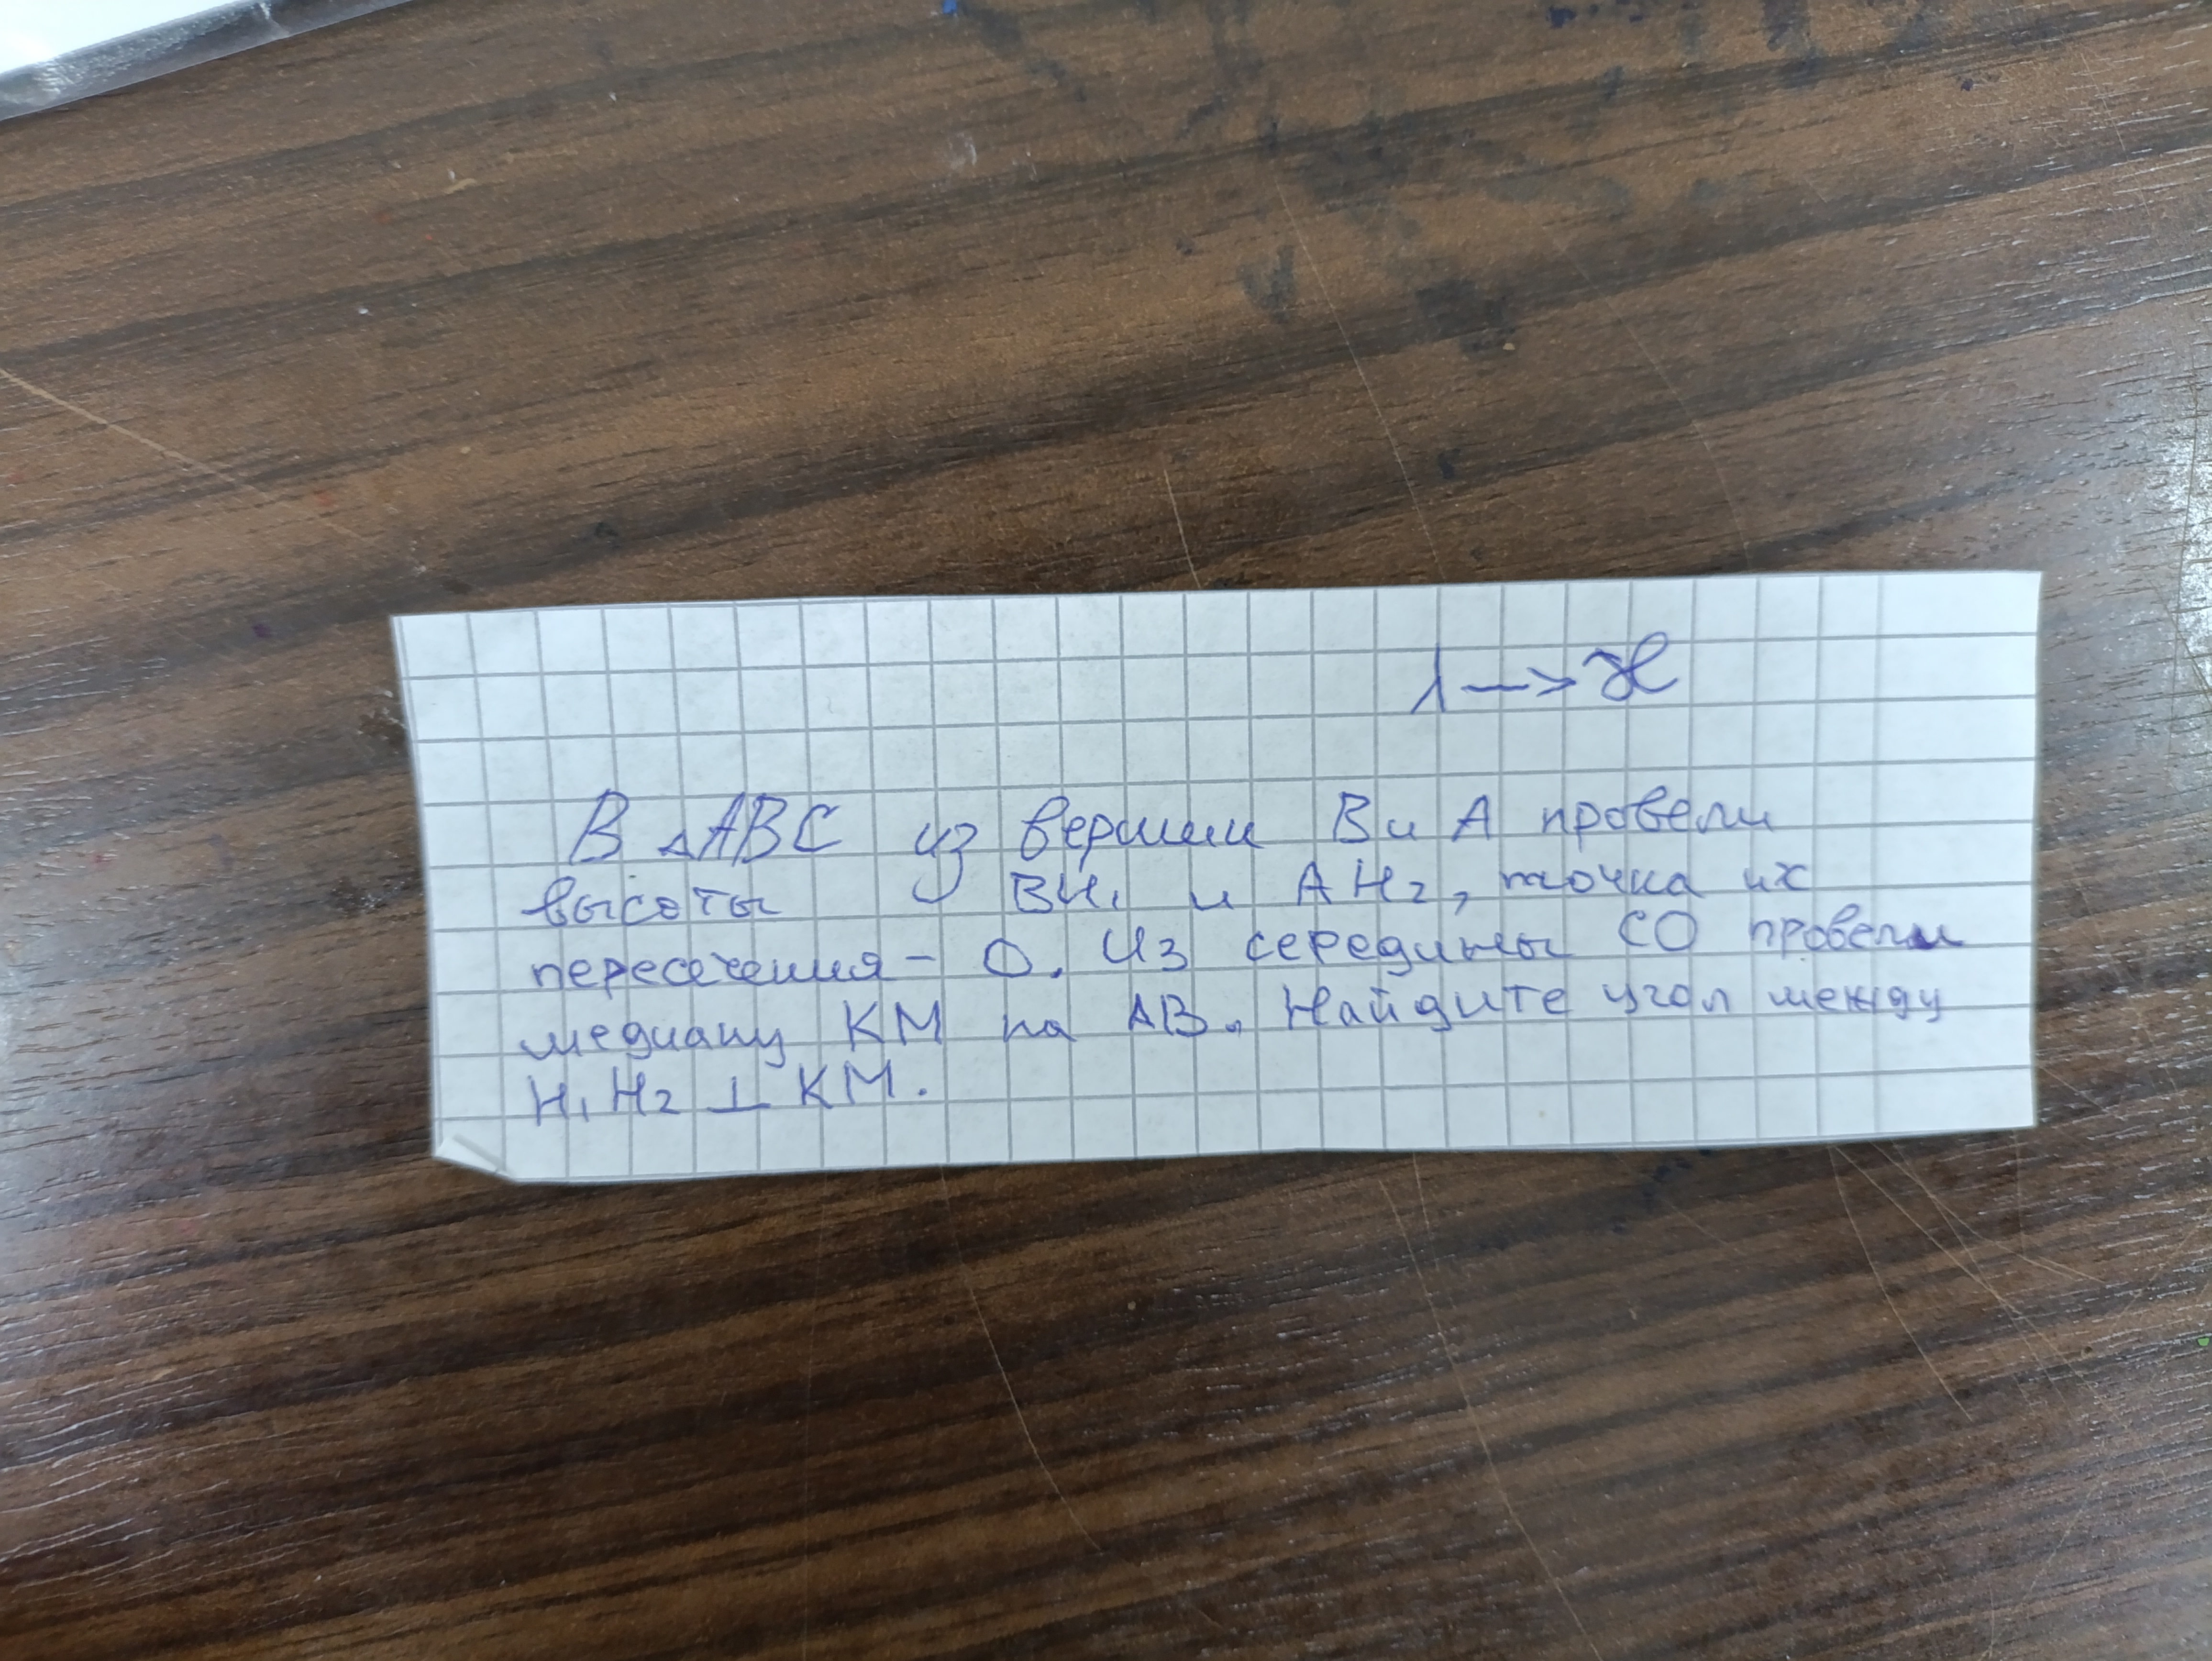 1 —> Ж
В △ABC из вершин В и А провели
высоты BH₁ и AH₂, точка их
пересечения - О. Из середины СО провели
медиану KM на AB. Найдите угол между
H₁H₂ ⊥ KM.